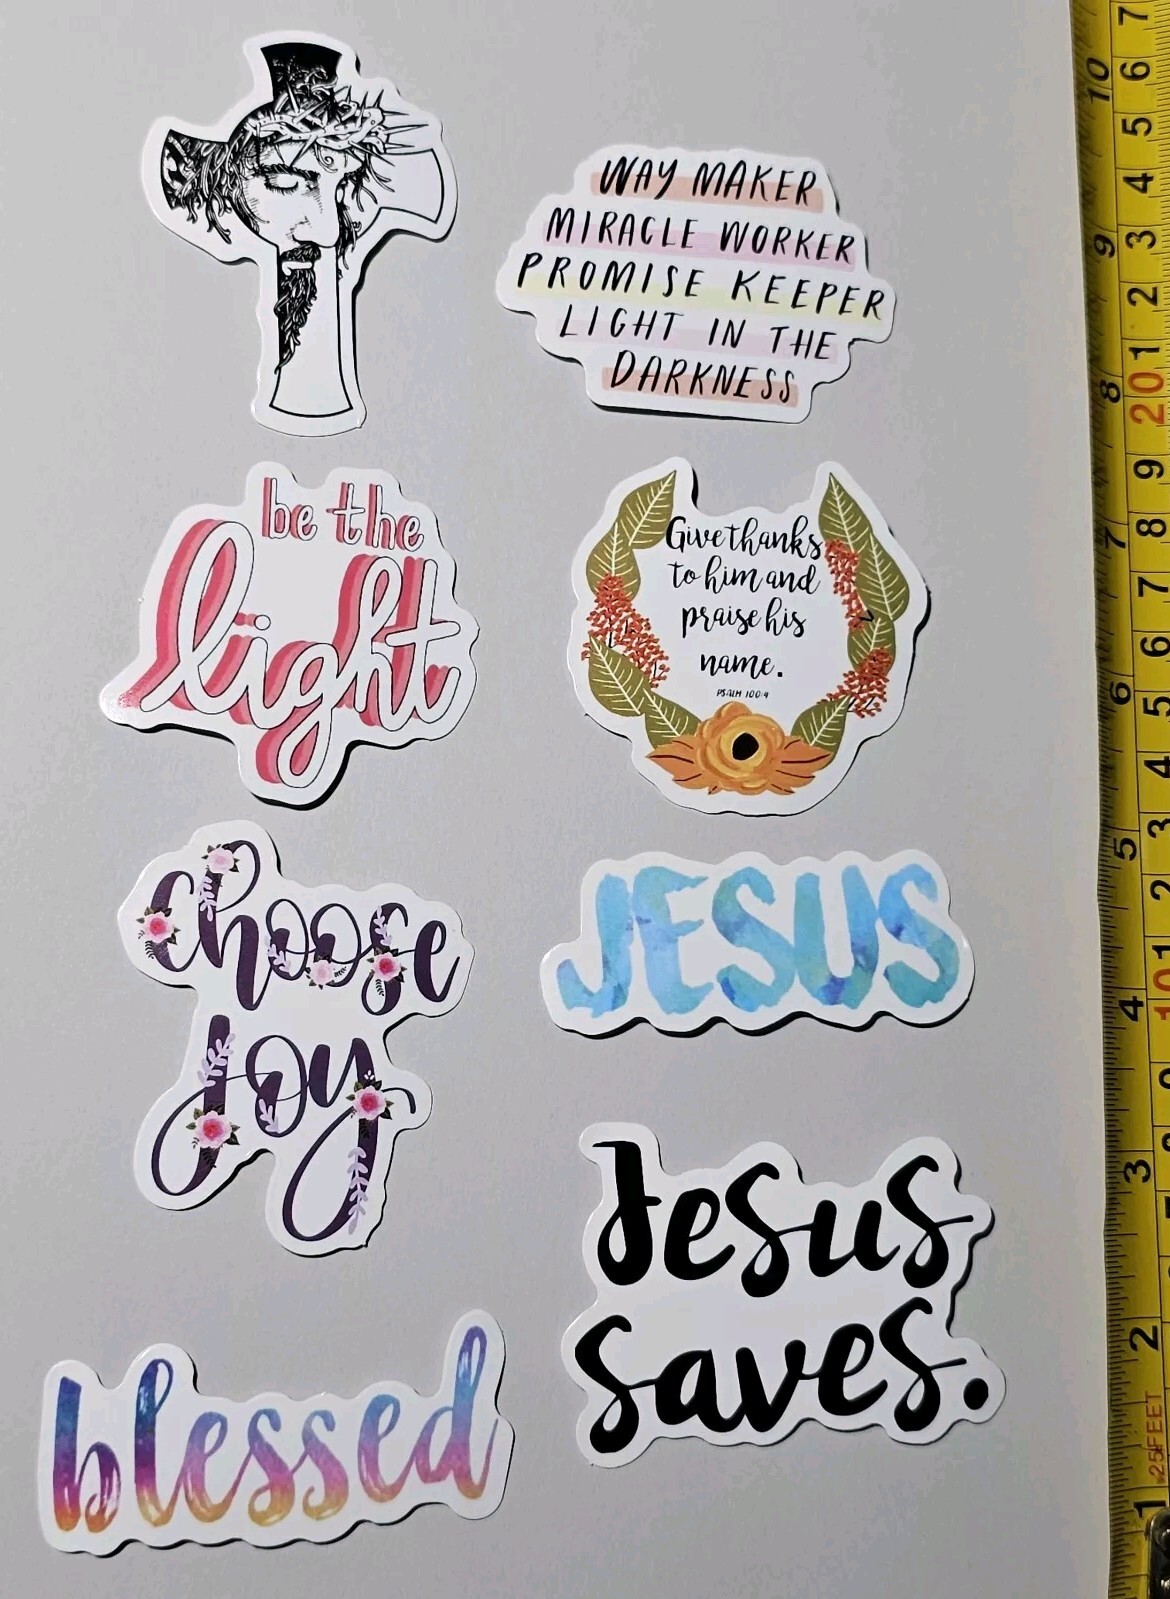 WAY MAKER
MIRACLE WORKER
PROMISE KEEPER
LIGHT IN THE
DARKNESS
be the
light
Give thanks
to him and
praise his
name.
PSALM 100:4
choose
Joy
JESUS
Jesus
saves.
blessed
7
6
5
4
3
2
1
20
9
8
7
6
5
4
3
2
1
10
9
8
7
10
9
8
7
6
5
4
3
2
1
25FEET